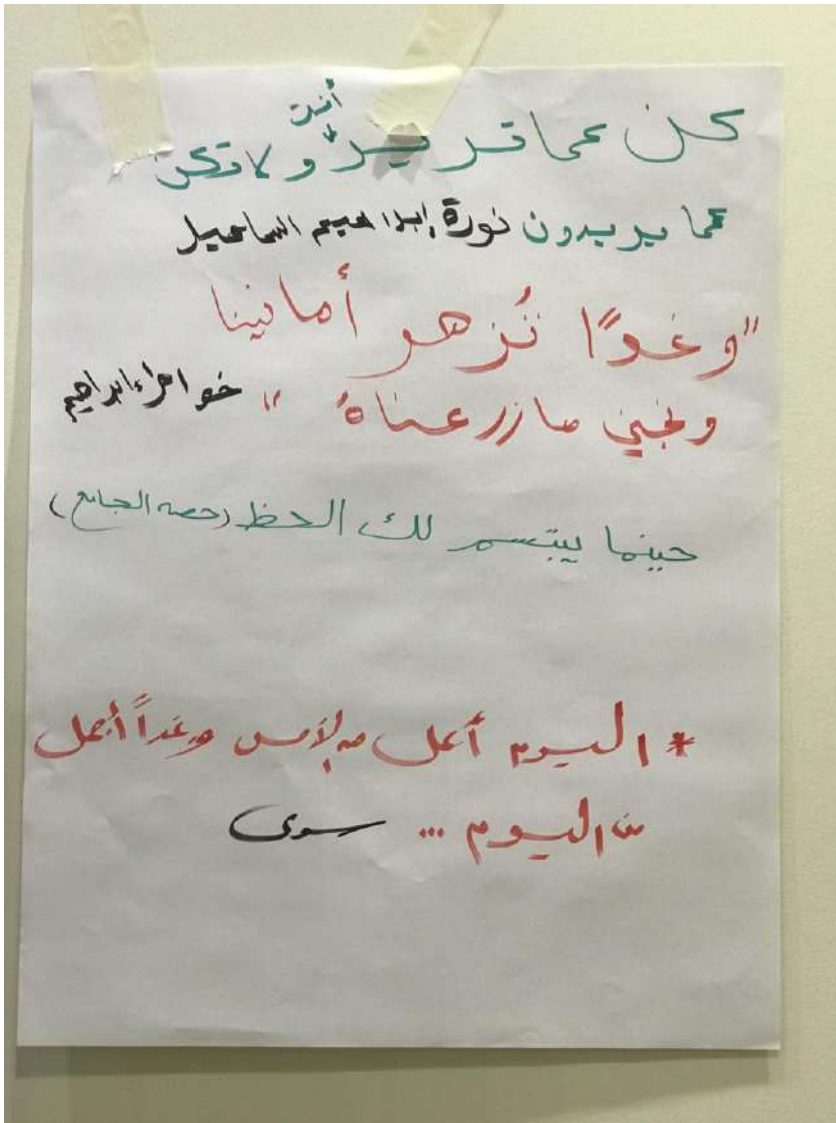 كن كما تريد أنت ولا تكن
كما يريدون نورة إبراهيم السماعيل
"وغدًا تُزهر أمانينا
ونجني ما زرعناهُ" خواطر ابراهيم
حينما يبتسم لك الحظ (حصه الجامع)
* اليوم أجمل من الأمس وغداً أجمل
من اليوم ...